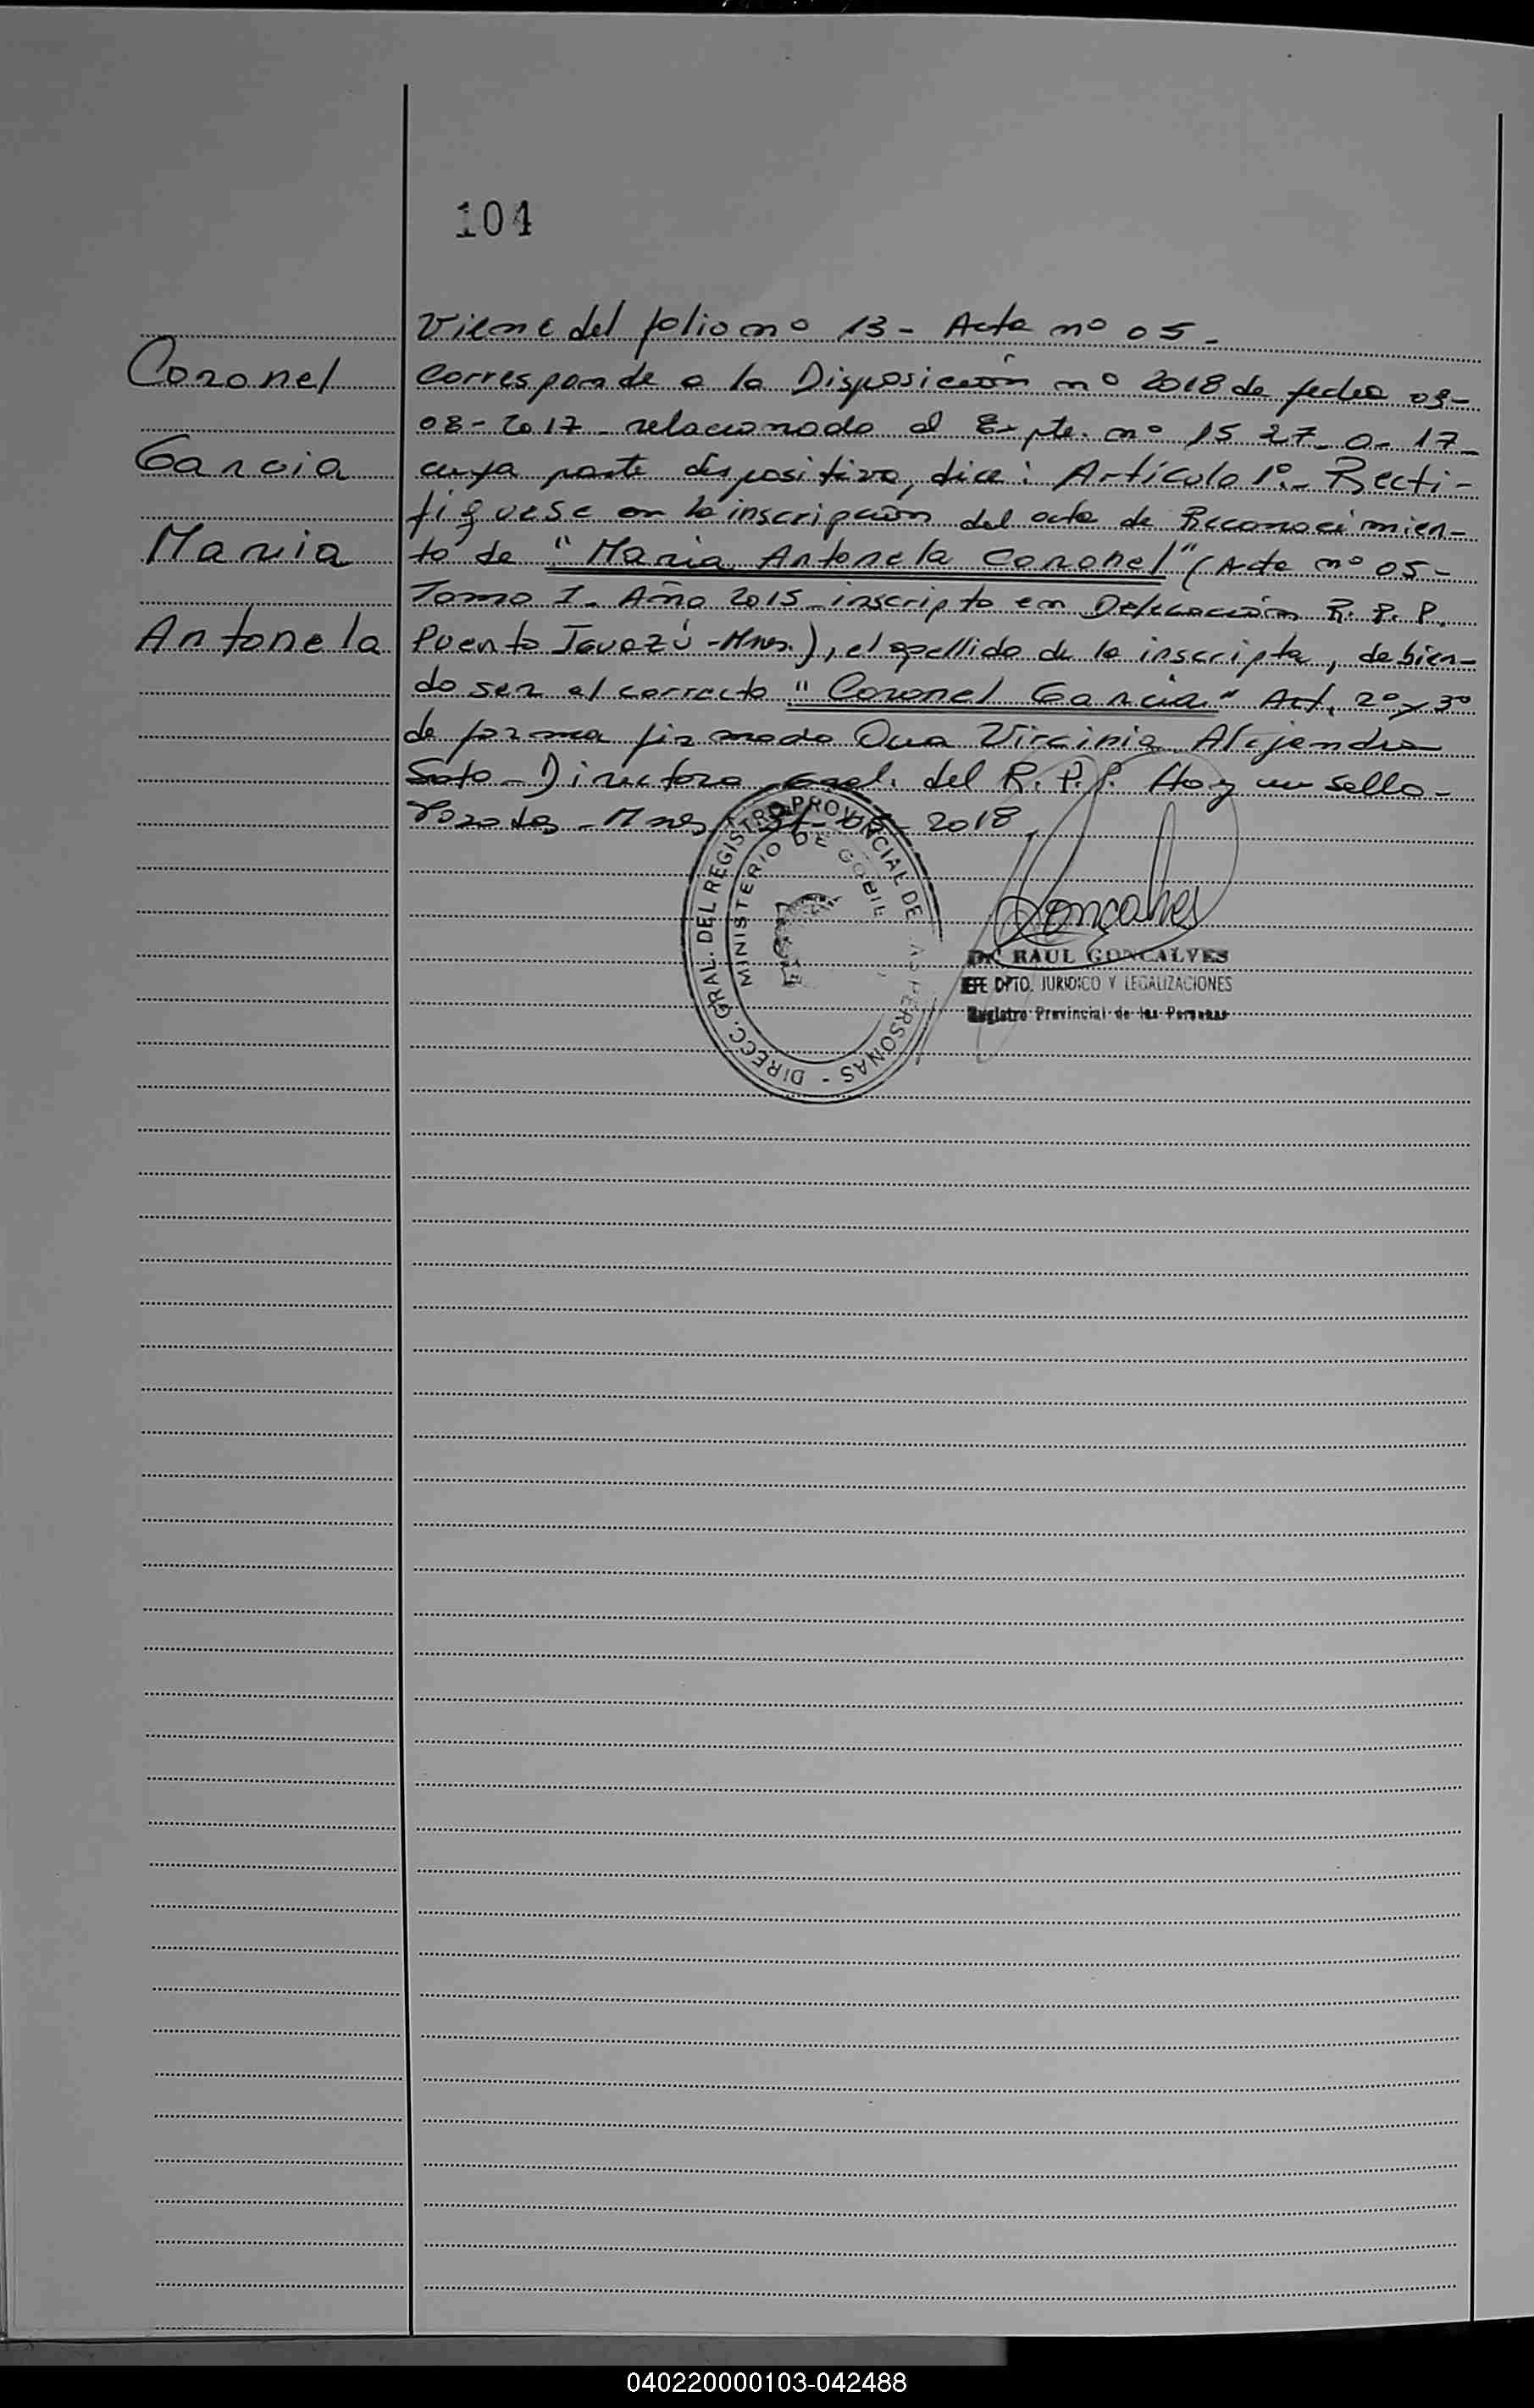 104
Viene del folio nº 13 - Acta nº 05 -
Coronel
Corresponde a la Disposición nº 2018 de fecha 03-
08-2017 - relacionado al Expte. nº 1527-0-17-
Garcia
cuya parte dispositiva, dice: Artículo 1º.- Recti-
fíquese en la inscripción del acta de Reconocimien-
Maria
to de "Maria Antonela Coronel" (Acta nº 05-
Tomo I - Año 2015 - inscripto en Delegación R. P. P.
Antonela
Puerto Iguazú - Mnes.), el apellido de la inscripta, debien-
do ser el correcto "Coronel Garcia" Art. 2º y 3º
de forma firmado Dra Virginia Alejandra
Directora Gral. del R. P. P. Hay un sello -
Posadas - Mnes 2018
DIRECC. GRAL. DEL REGISTRO PROVINCIAL DE PERSONAS -
MINISTERIO DE GOBIE
Goncalves
Dr. RAUL GONCALVES
JEFE DPTO. JURIDICO Y LEGALIZACIONES
Registro Provincial de las Personas
040220000103-042488